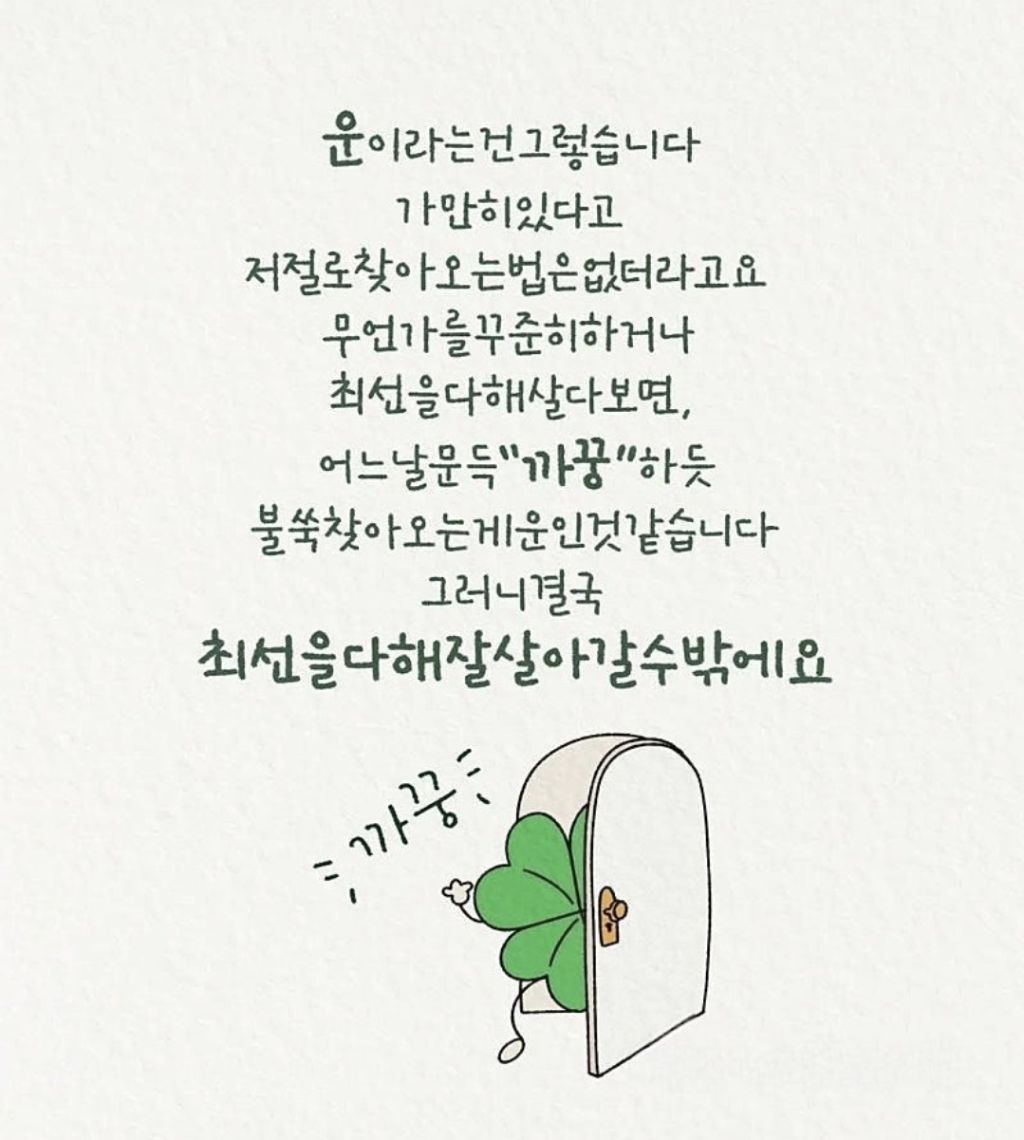 운이라는건그렇습니다
가만히있다고
저절로찾아오는법은없더라고요
무언가를꾸준히하거나
최선을다해살다보면,
어느날문득"까꿍"하듯
불쑥찾아오는게운인것같습니다
그러니결국
최선을다해잘살아갈수밖에요
까꿍